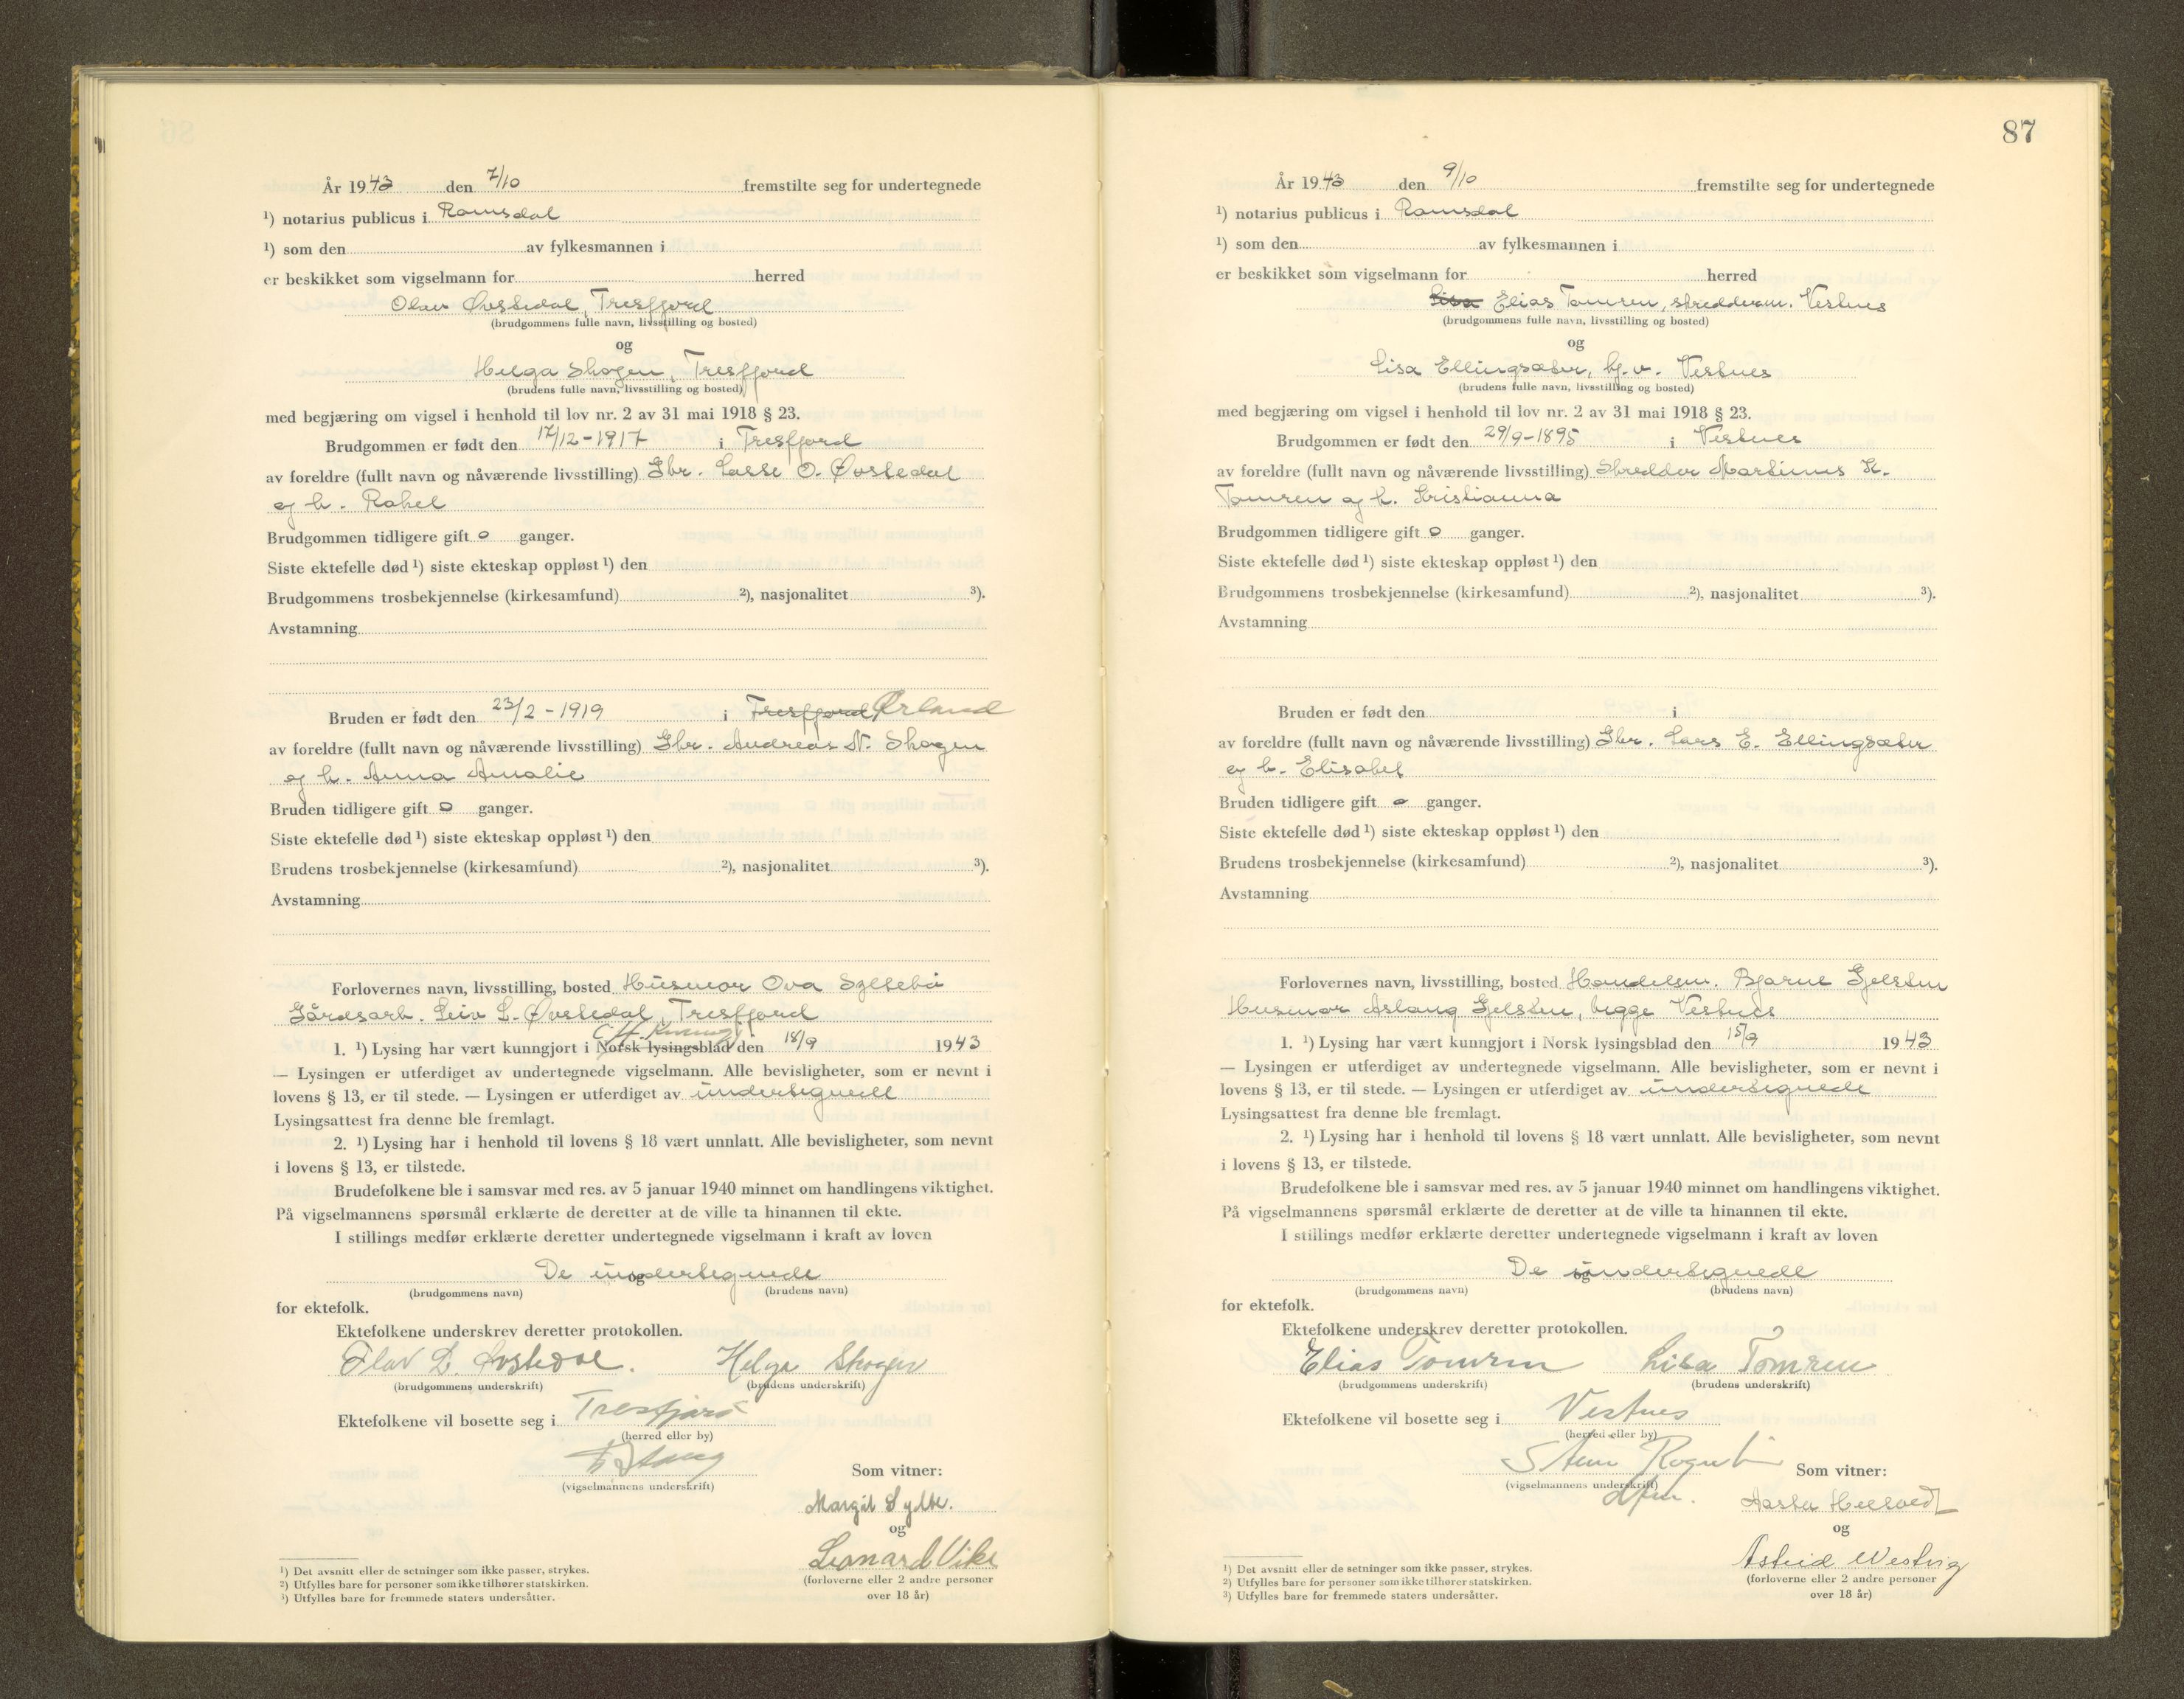 År 1943 den 7/10 fremstilte seg for undertegnede
¹) notarius publicus i Romsdal
¹) som den av fylkesmannen i
er beskikket som vigselmann for herred
Olav Øvstedal, Tresfjord
(brudgommens fulle navn, livsstilling og bosted)
og
Helga Skogen, Tresfjord
(brudens fulle navn, livsstilling og bosted)
med begjæring om vigsel i henhold til lov nr. 2 av 31 mai 1918 § 23.
Brudgommen er født den 17/12-1917 i Tresfjord
av foreldre (fullt navn og nåværende livsstilling) Gbr. Lasse O. Øvstedal
og h. Rakel
Brudgommen tidligere gift 0 ganger.
Siste ektefelle død ¹) siste ekteskap oppløst ¹) den
Brudgommens trosbekjennelse (kirkesamfund) ²), nasjonalitet ³).
Avstamning
Bruden er født den 23/2-1919 i Tresfjord, Ørland
av foreldre (fullt navn og nåværende livsstilling) Gbr. Andreas N. Skogen
og h. Anna Amalie
Bruden tidligere gift 0 ganger.
Siste ektefelle død ¹) siste ekteskap oppløst ¹) den
Brudens trosbekjennelse (kirkesamfund) ²), nasjonalitet ³).
Avstamning
Forlovernes navn, livsstilling, bosted Husmor Ova Syltebø
Gårdsarb. Leiv L. Øvstedal, Tresfjord
1. ¹) Lysing har vært kunngjort i Norsk lysingsblad den 18/9 1943
— Lysingen er utferdiget av undertegnede vigselmann. Alle bevisligheter, som er nevnt i
lovens § 13, er til stede. — Lysingen er utferdiget av undertegnede
Lysingsattest fra denne ble fremlagt.
2. ¹) Lysing har i henhold til lovens § 18 vært unnlatt. Alle bevisligheter, som nevnt
i lovens § 13, er tilstede.
Brudefolkene ble i samsvar med res. av 5 januar 1940 minnet om handlingens viktighet.
På vigselmannens spørsmål erklærte de deretter at de ville ta hinannen til ekte.
I stillings medfør erklærte deretter undertegnede vigselmann i kraft av loven
De undertegnede
og
(brudgommens navn) (brudens navn)
for ektefolk.
Ektefolkene underskrev deretter protokollen.
Olav L. Øvstedal. Helga Skogen
(brudgommens underskrift) (brudens underskrift)
Ektefolkene vil bosette seg i Tresfjord
(herred eller by)
(vigselmannens underskrift)
Som vitner:
Margit Sylte.
og
Leonard Vike
(forloverne eller 2 andre personer
over 18 år)
¹) Det avsnitt eller de setninger som ikke passer, strykes.
²) Utfylles bare for personer som ikke tilhører statskirken.
³) Utfylles bare for fremmede staters undersåtter.
87
År 1943 den 9/10 fremstilte seg for undertegnede
¹) notarius publicus i Romsdal
¹) som den av fylkesmannen i
er beskikket som vigselmann for herred
Lisa Elias Tomren, skredderm. Vestnes
(brudgommens fulle navn, livsstilling og bosted)
og
Lisa Ellingsæter, hj.v. Vestnes
(brudens fulle navn, livsstilling og bosted)
med begjæring om vigsel i henhold til lov nr. 2 av 31 mai 1918 § 23.
Brudgommen er født den 29/9-1895 i Vestnes
av foreldre (fullt navn og nåværende livsstilling) Skredder Martinus K.
Tomren og h. Kristianna
Brudgommen tidligere gift 0 ganger.
Siste ektefelle død ¹) siste ekteskap oppløst ¹) den
Brudgommens trosbekjennelse (kirkesamfund) ²), nasjonalitet ³).
Avstamning
Bruden er født den i
av foreldre (fullt navn og nåværende livsstilling) Gbr. Lars E. Ellingsæter
og h. Elisabet
Bruden tidligere gift 0 ganger.
Siste ektefelle død ¹) siste ekteskap oppløst ¹) den
Brudens trosbekjennelse (kirkesamfund) ²), nasjonalitet ³).
Avstamning
Forlovernes navn, livsstilling, bosted Handelsm. Bjarne Gjelsten
Husmor Aslaug Gjelsten, begge Vestnes
1. ¹) Lysing har vært kunngjort i Norsk lysingsblad den 15/9 1943
— Lysingen er utferdiget av undertegnede vigselmann. Alle bevisligheter, som er nevnt i
lovens § 13, er til stede. — Lysingen er utferdiget av undertegnede
Lysingsattest fra denne ble fremlagt.
2. ¹) Lysing har i henhold til lovens § 18 vært unnlatt. Alle bevisligheter, som nevnt
i lovens § 13, er tilstede.
Brudefolkene ble i samsvar med res. av 5 januar 1940 minnet om handlingens viktighet.
På vigselmannens spørsmål erklærte de deretter at de ville ta hinannen til ekte.
I stillings medfør erklærte deretter undertegnede vigselmann i kraft av loven
De undertegnede
og
(brudgommens navn) (brudens navn)
for ektefolk.
Ektefolkene underskrev deretter protokollen.
Elias Tomren Lisa Tomren
(brudgommens underskrift) (brudens underskrift)
Ektefolkene vil bosette seg i Vestnes
(herred eller by)
(vigselmannens underskrift)
Som vitner:
Aasta
og
Astrid Westvig
(forloverne eller 2 andre personer
over 18 år)
¹) Det avsnitt eller de setninger som ikke passer, strykes.
²) Utfylles bare for personer som ikke tilhører statskirken.
³) Utfylles bare for fremmede staters undersåtter.